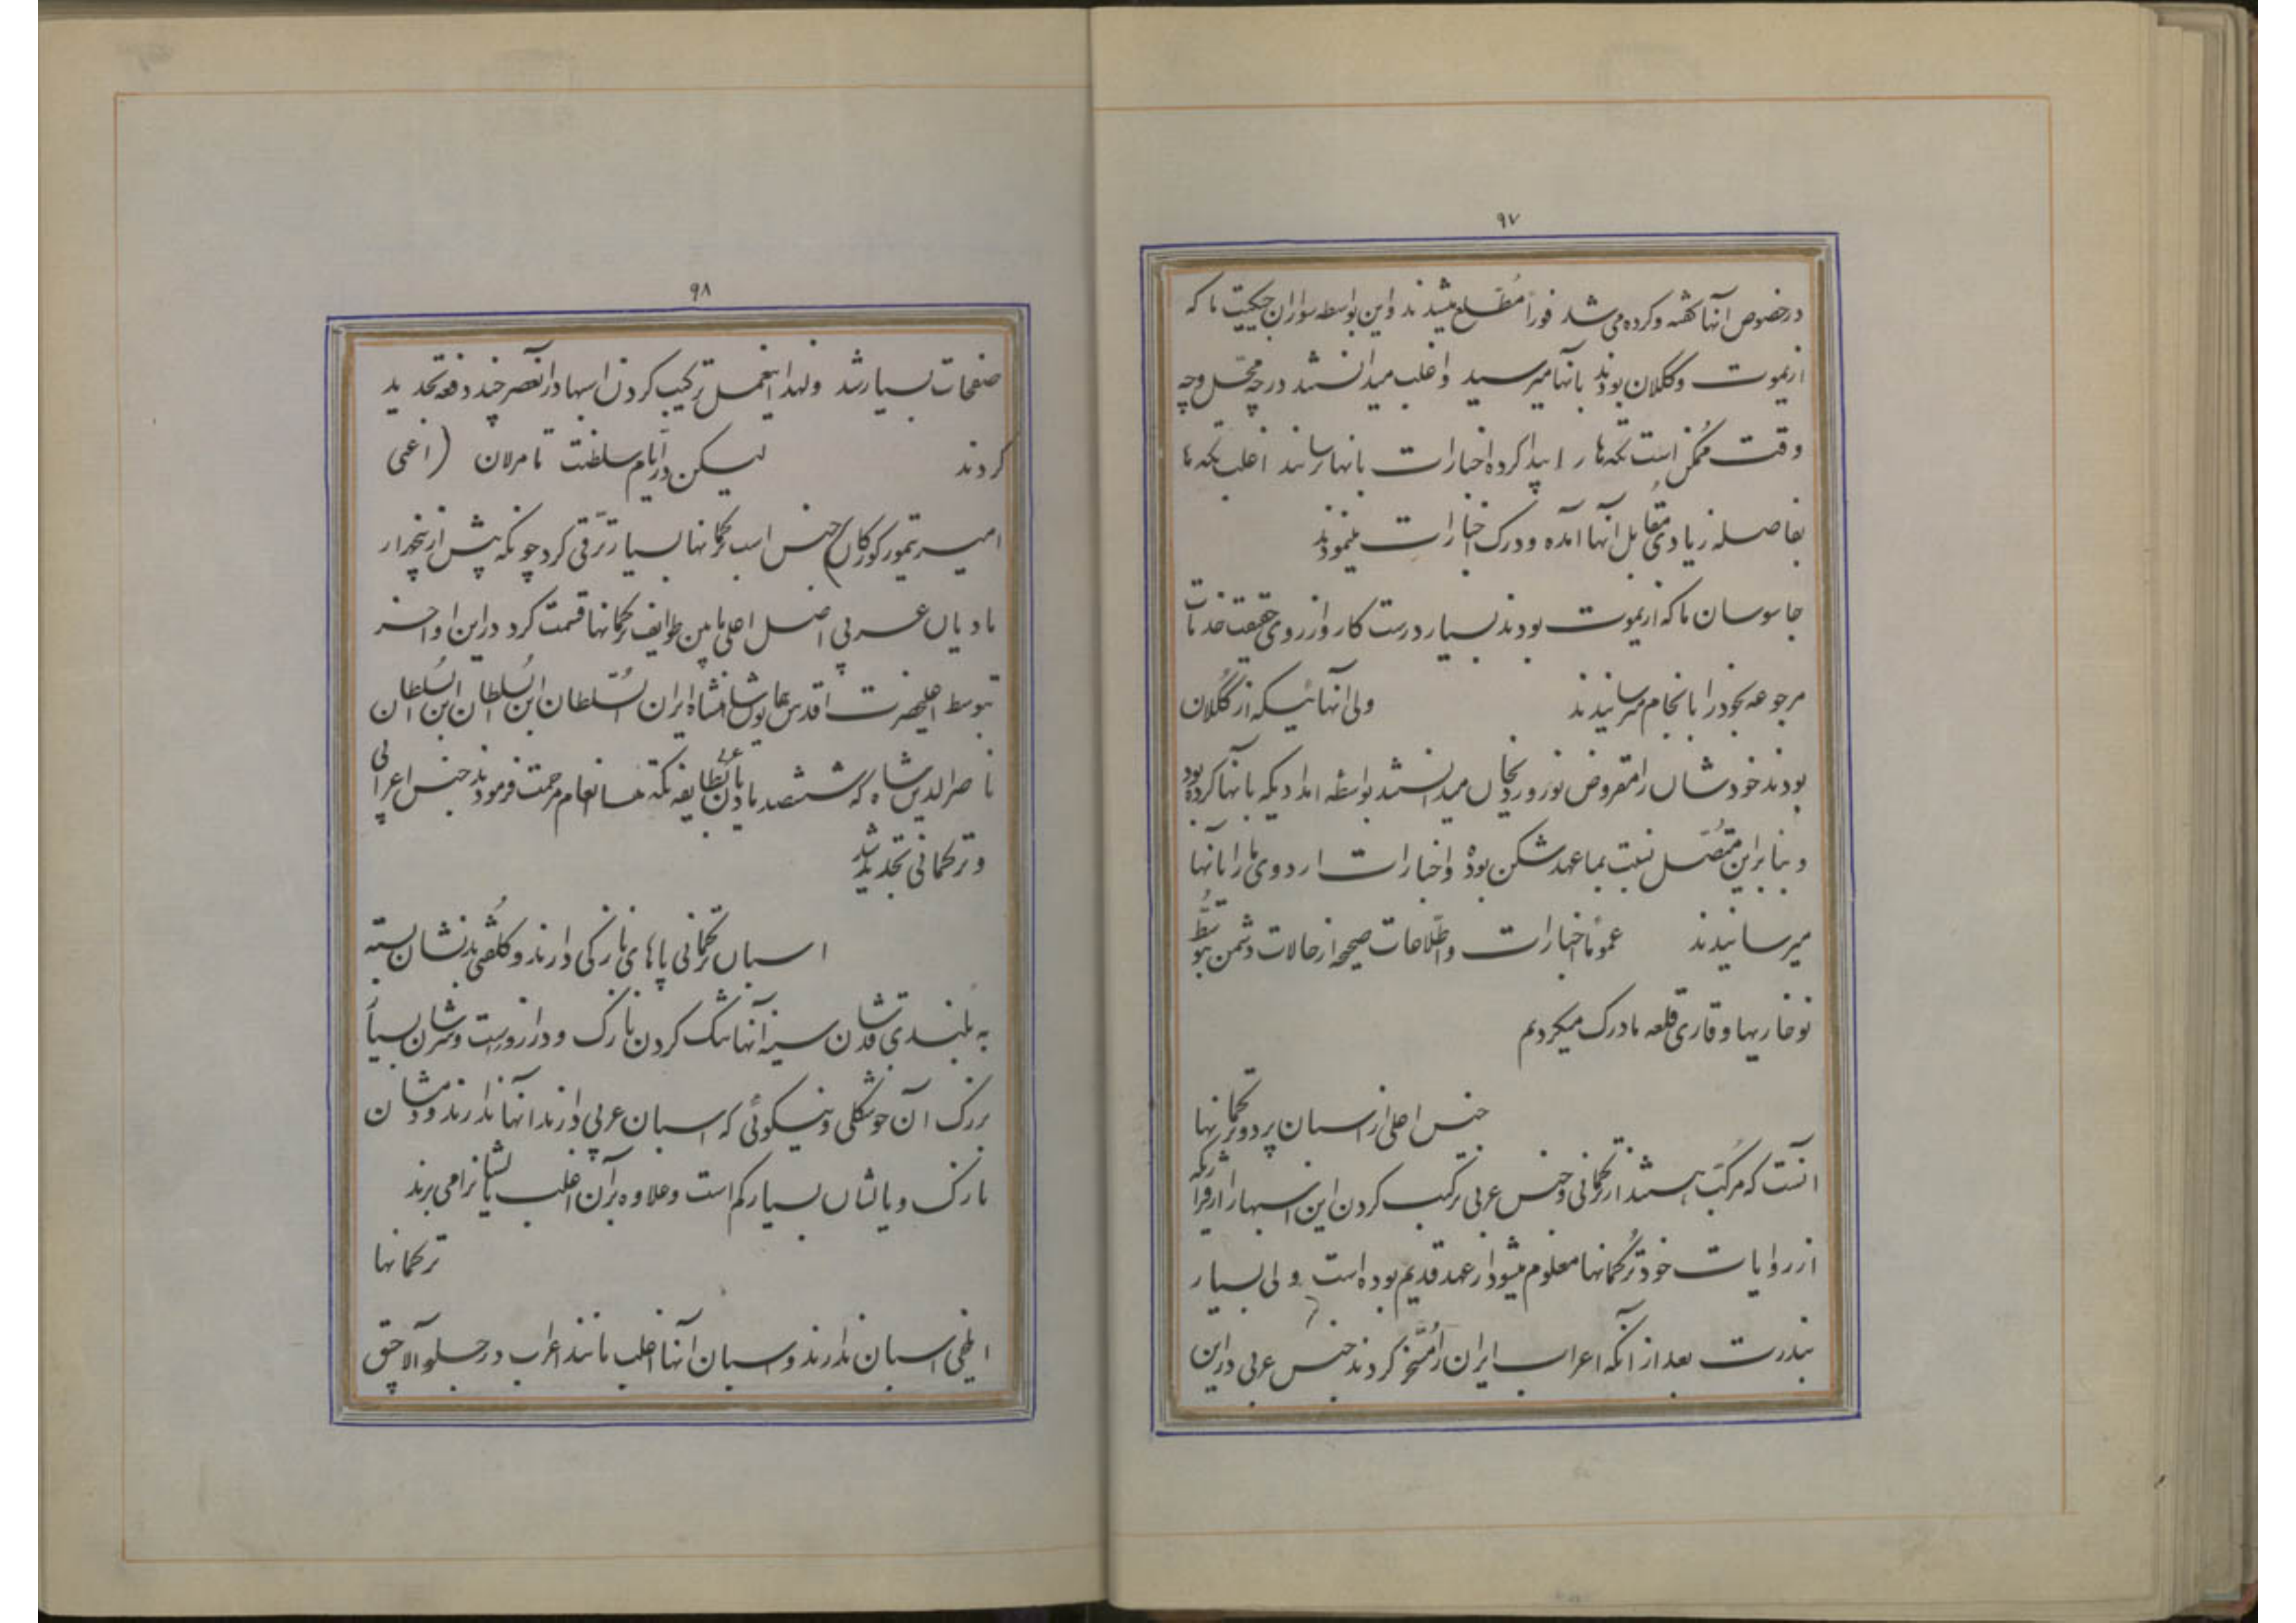 ۹۷
در خصوص آنها گفته و کرده می شد فوراً مُطّلع میشدند و این بواسطه سواران چکییت ما که
از یموت و گلکلان بودند بانها میرسید و اغلب میدانستند در چه محل و چه
وقت مُمکن است تکه‌ها را پیدا کرده اخبارات بانها برسانند اغلب تکه ها
بفاصله زیادی مقابل آنها آمده و درک اخبارات مینمودند
جاسوسان ما که از یموت بودند بسیار درست کار و از روی حقیقت خدمات
مرجوعه بخود را بانجام میرسانیدند ولی آنهائیکه از گلکلان
بودند خودشان را مقروض نور وردیخان میدانستند بواسطه امدادیکه بانها کرده بود
و بنابراین متّصل نسبت بما عهد شکن بوده و اخبارات اردوی ما را بانها
میرسانیدند عموماً اخبارات و اطّلاعات صحیحه از حالات دشمن بتوسّط
نوخاریها و قاری قلعه ما درک میکردیم
جنس اعلی از اسبان پر دو ترکمانها
آنست که مرکّب هستند از ترکمانی و جنس عربی ترکیب کردن این اسبها را از قراریکه
از روایات خود ترکمانها معلوم میشود از عهد قدیم بوده است ولی بسیار
بندرت بعد از آنکه اعراب ایران را مُسَخّر کردند جنس عربی در این
۹۸
صفحات بسیار شد و لهذا اینعمل ترکیب کردن اسبها در آنعصر چند دفعه تجدید
کردند لیکن در ایام سلطنت تامرلان (اعنی
امیر تیمور کورکان) جنس اسب ترکمانها بسیار ترّقی کرد چونکه پیش از پنجهزار
مادیان عربی اصل اعلی مابین طوایف ترکمانها قسمت کرد در این اواخر
بتوسط اعلیحضرت اقدس همایون شاهنشاه ایران السّلطان ابن السُلطان ابن السُلطان
ناصرالدین شاه که ششصد مادیان بطایفه تکه انعام مرحمت فرمودند جنس اعرابی
و ترکمانی تجدید شد
اسبان ترکمانی پاهای نازکی دارند و کلفتی بدنشان بسته
به بلندی قدشان سینه آنها تنگ گردن نازک و دراز و راست و سرشان بسیار
بزرگ آن خوشگلی و نیکوئی که اسبان عربی دارند آنها ندارند و دمشان
نازک و یالشان بسیار کم است و علاوه بر آن اغلب یالشانرا می برند
ترکمانها
ایلخی اسبان ندارند و اسبان آنها اغلب مانند اعراب در جلو آلاچق